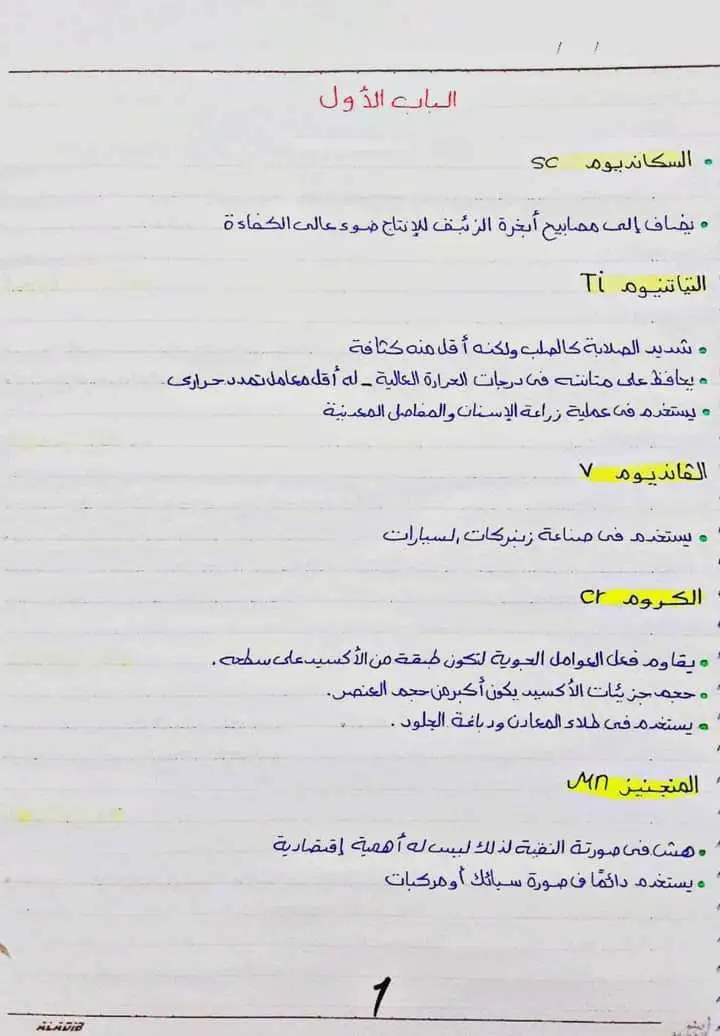 / /
الباب الأول
السكانديوم Sc
يضاف إلى مصابيح أبخرة الزئبق للإنتاج ضوء عالى الكفاءة
التيتانيوم Ti
شديد الصلابة كالصلب ولكنه أقل منه كثافة
يحافظ على متانته فى درجات الحرارة العالية - له أقل معامل تمدد حرارى
يستخدم فى عملية زراعة الإسنان والمفاصل المعدنية
الڤانديوم V
يستخدم فى صناعة زنبركات السيارات
الكروم Cr
يقاوم فعل العوامل الجوية لتكون طبقة من الأكسيد على سطحه.
حجم جزيئات الأكسيد يكون أكبر من حجم العنصر.
يستخدم فى طلاء المعادن ودباغة الجلود.
المنجنيز Mn
هش فى صورتة النقية لذلك ليس له أهمية إقتصادية
يستخدم دائمًا ف صورة سبائك أو مركبات
1
ALADIB